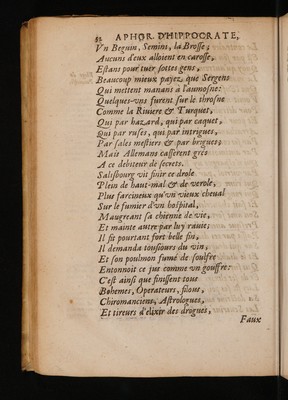 52 APHOR. D'HIPPOCRATE,
Vn Beguin, Semini, la Brosse;
Aucuns d'eux alloient en carosse,
Estans pour tuer sottes gens,
Beaucoup mieux payez que Sergens
Qui mettent manans à l'aumosne:
Quelques-vns furent sur le throsne
Comme la Riuiere & Turquet,
Qui par hazard, qui par caquet,
Qui par ruses, qui par intrigues,
Par sales mestiers & par brigues;
Mais Allemans casserent grés
A ce debiteur de secrets.
Salisbourg vit finir ce drole
Plein de haut-mal & de verole,
Plus farcineux qu'vn vieux cheual
Sur le fumier d'vn hospital,
Maugreant sa chienne de vie,
Et mainte autre par luy rauie;
Il fit pourtant fort belle fin,
Il demanda tousiours du vin,
Et son poulmon fumé de soulfre
Entonnoit ce jus comme vn gouffre:
C'est ainsi que finissent tous
Bohemes, Operateurs, filous,
Chiromanciens, Astrologues,
Et tireurs d'elixir des drogues,
Faux